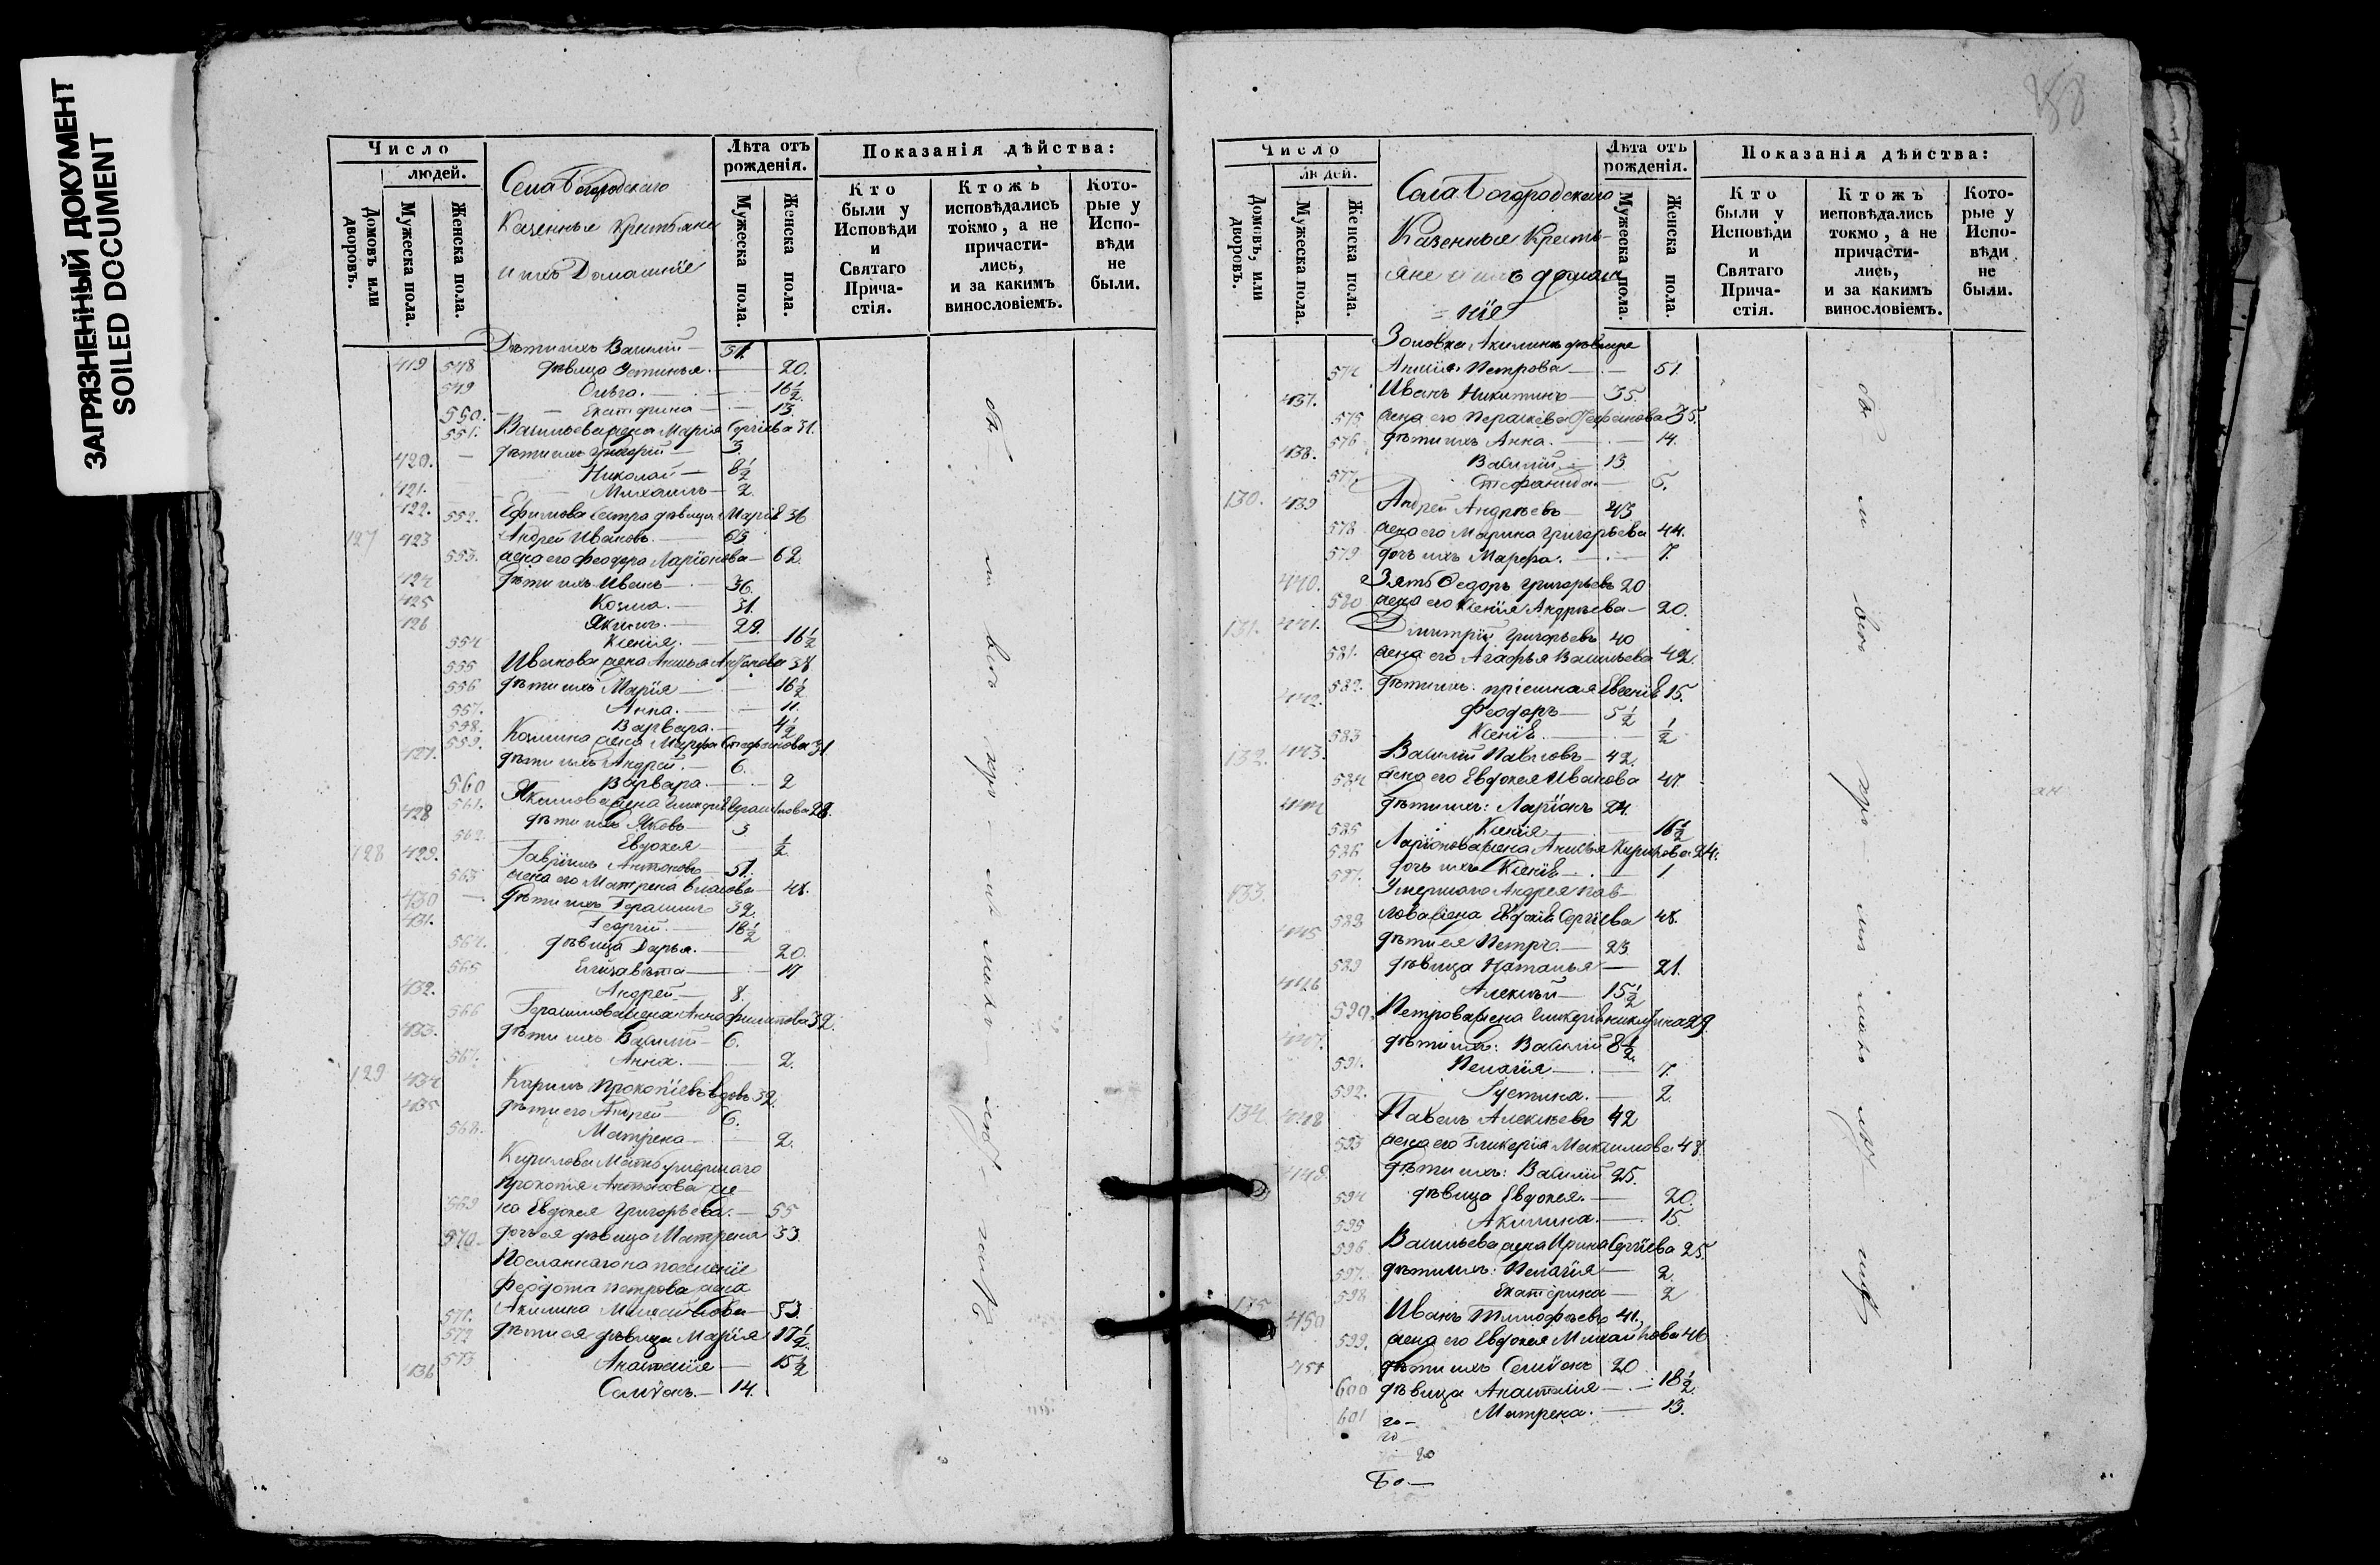 ЗАГРЯЗНЕННЫЙ ДОКУМЕНТ
SOILED DOCUMENT
Число
людей.
Домовъ или дворовъ.
Мужеска пола.
Женска пола.
Села Богородскаго
Казенные Крестьяне
и ихъ Домашніе
Лѣта отъ рожденія.
Мужеска пола.
Женска пола.
Показанія дѣйства:
Кто были у Исповѣди и Святаго Прича-стія.
Ктожъ исповѣдались токмо, а не причасти-лись, и за какимъ винословіемъ.
Кото-рые у Испо-вѣди не были.
Дѣти ихъ Василій 31.
419 548 дѣвица Устинья 20.
549 Ольга. 16½
550. Екатерина 13.
551. Васильева жена Марія Сергіева 31.
420. дѣти ихъ Григорій 5.
Николай 8½
421. Михаилъ 2.
422. 552. Ефимова сестра дѣвица Марія 36
127 423 Андрей Ивановъ. 65
553. жена его Феодора Ларіонова 62.
424 дѣти ихъ Иванъ 36.
425 Козма. 31.
426 Якимъ. 29.
554 Ксенія. 16½
555 Иванова жена Анисья 38
556 дѣти ихъ Марія 16½
557. Анна. 11.
558. Варвара. 4½
559. Козмина жена Марфа Стефанова 31
427. дѣти ихъ Андрей. 6.
560 Варвара. 2
561. Якимова жена 28.
428 дѣти ихъ Яковъ 3
562. Евдокея ½
128 429. Гавріилъ Антоновъ 51.
563 жена его Матрена Власова 48.
430 дѣти ихъ Герасимъ 32.
431. Георгій. 18½
564. дѣвица Дарья. 20.
565 Елизавета 17
432. Андрей 8.
566 Герасимова жена Анна Филипова 32.
433. дѣти ихъ Василій 6.
567. Анна. 2.
129 434 Кирилъ Прокопіевъ вдовъ 32.
435 дѣти его Андрей 6.
568. Матрена 2.
Кирилова Мать умершаго
Прокопія Антонова же-
569 на Евдокея Григорьева. 55
570. дочь ея дѣвица Матрена 33
Посланнаго на поселеніе
Феодота Петрова жена
571. Акилина Михайлова 53.
572 дѣти ея дѣвица Марія 17½
573 Анастасія 15½
436 Семіонъ. 14.
Число
людей.
Домовъ, или дворовъ.
Мужеска пола.
Женска пола.
Села Богородскаго
Казенные Кресть-
яне и ихъ домаш
= ніе
Лѣта отъ рожденія.
Мужеска пола.
Женска пола.
Показанія дѣйства:
Кто были у Исповѣди и Святаго Прича-стія.
Ктожъ исповѣдались токмо, а не причасти-лись, и за какимъ винословіемъ.
Кото-рые у Испо-вѣди не были.
Золовка Акилины дѣвица
574 Петрова 51.
437. Иванъ Никитинъ 35.
575. жена его 35.
576 дѣти ихъ Анна. 14.
438. Василій 13
577. Стефанида. 5.
130. 439 Андрей Андреевъ 43
578 жена его Марина Григорьева 44.
579 дочь ихъ Марфа. 7.
440. Зять Федоръ Григорьевъ 20
580 жена его Ксенія Андреева 20.
131. 441. Димитрій Григорьевъ 40
581. жена его Агафья Васильева 42.
582. дѣти ихъ: пріемная Евгенія 15.
442. Феодоръ 5½
583 Ксенія. ½
132. 443. Василій Павловъ 42.
584 жена его Евдокея Иванова 47.
444 дѣти ихъ: Ларіонъ 24.
585 Ксенія 16½
586 Ларіонова жена Анисья 24.
587. дочь ихъ Ксенія 1
133. Умершаго Андрея Пав-
588 лова жена Евдокія Сергіева 48.
445 дѣти ея Петръ. 23
589 дѣвица Наталья 21.
446 Алексѣй 15½
590. Петрова жена Гликерія Никитина 29.
447. дѣти ихъ: Василій 8½
591. Пелагія 7.
592. Устина. 2.
134. 448 Павелъ Алексѣевъ 42
593 жена его Гликерія Максимова 48.
449. дѣти ихъ: Василій 25.
594 дѣвица Евдокея. 20.
595 Акилина. 15.
596 Васильева жена Ирина Сергіева 25.
597. дѣти ихъ: Пелагія 2
598 Екатерина 2
135 450 Иванъ Тимофѣевъ 41.
599. жена его Евдокея Михайлова 46
451 дѣти ихъ Семіонъ 20
600 дѣвица Анастасія 18½
601 Матрена. 13.
Бо—